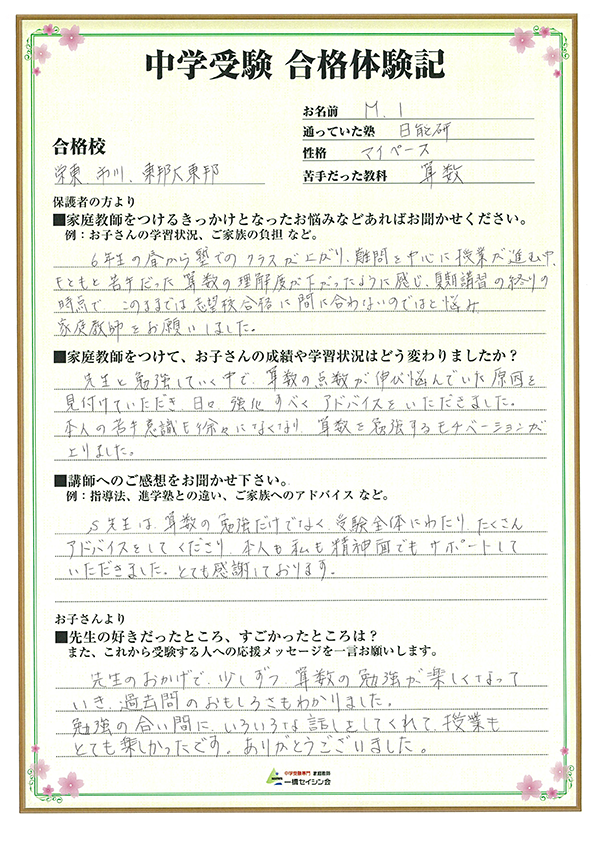 中学受験 合格体験記
お名前 M.I
通っていた塾 日能研
合格校
性格 マイペース
栄東、市川、東邦大東邦
苦手だった教科 算数
保護者の方より
■家庭教師をつけるきっかけとなったお悩みなどあればお聞かせください。
例：お子さんの学習状況、ご家族の負担 など。
6年生の春から塾でのクラスが上がり、難問を中心に授業が進む中、
もともと苦手だった算数の理解度が下がったように感じ、夏期講習の終りの
時点で、このままでは志望校合格に間に合わないのではと悩み
家庭教師をお願いしました。
■家庭教師をつけて、お子さんの成績や学習状況はどう変わりましたか？
先生と勉強していく中で、算数の点数が伸び悩んでいた原因を
見付けていただき、日々、強化すべくアドバイスをいただきました。
本人の苦手意識も徐々になくなり、算数を勉強するモチベーションが
上りました。
■講師へのご感想をお聞かせ下さい。
例：指導法、進学塾との違い、ご家族へのアドバイス など。
S先生は、算数の勉強だけでなく、受験全体にわたり、たくさん
アドバイスをしてくださり、本人も私も精神面でもサポートして
いただきました。とても感謝しております。
お子さんより
■先生の好きだったところ、すごかったところは？
また、これから受験する人への応援メッセージを一言お願いします。
先生のおかげで、少しずつ、算数の勉強が楽しくなって
いき、過去問のおもしろさもわかりました。
勉強の合い間に、いろいろな話しをしてくれて、授業も
とても楽しかったです。ありがとうございました。
中学受験専門 家庭教師
一橋セイシン会